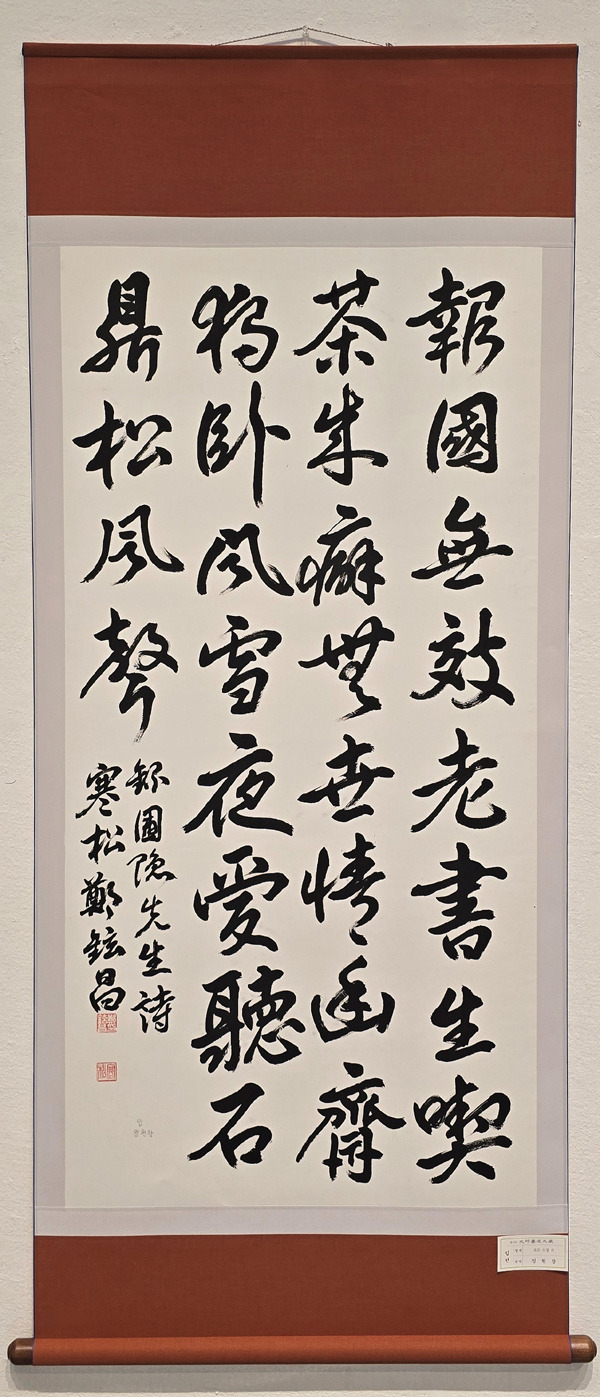 報國無效老書生喫
茶成癖無世情幽齋
獨臥風雪夜愛聽石
鼎松風聲
錄圃隱先生詩
寒松鄭鉉昌